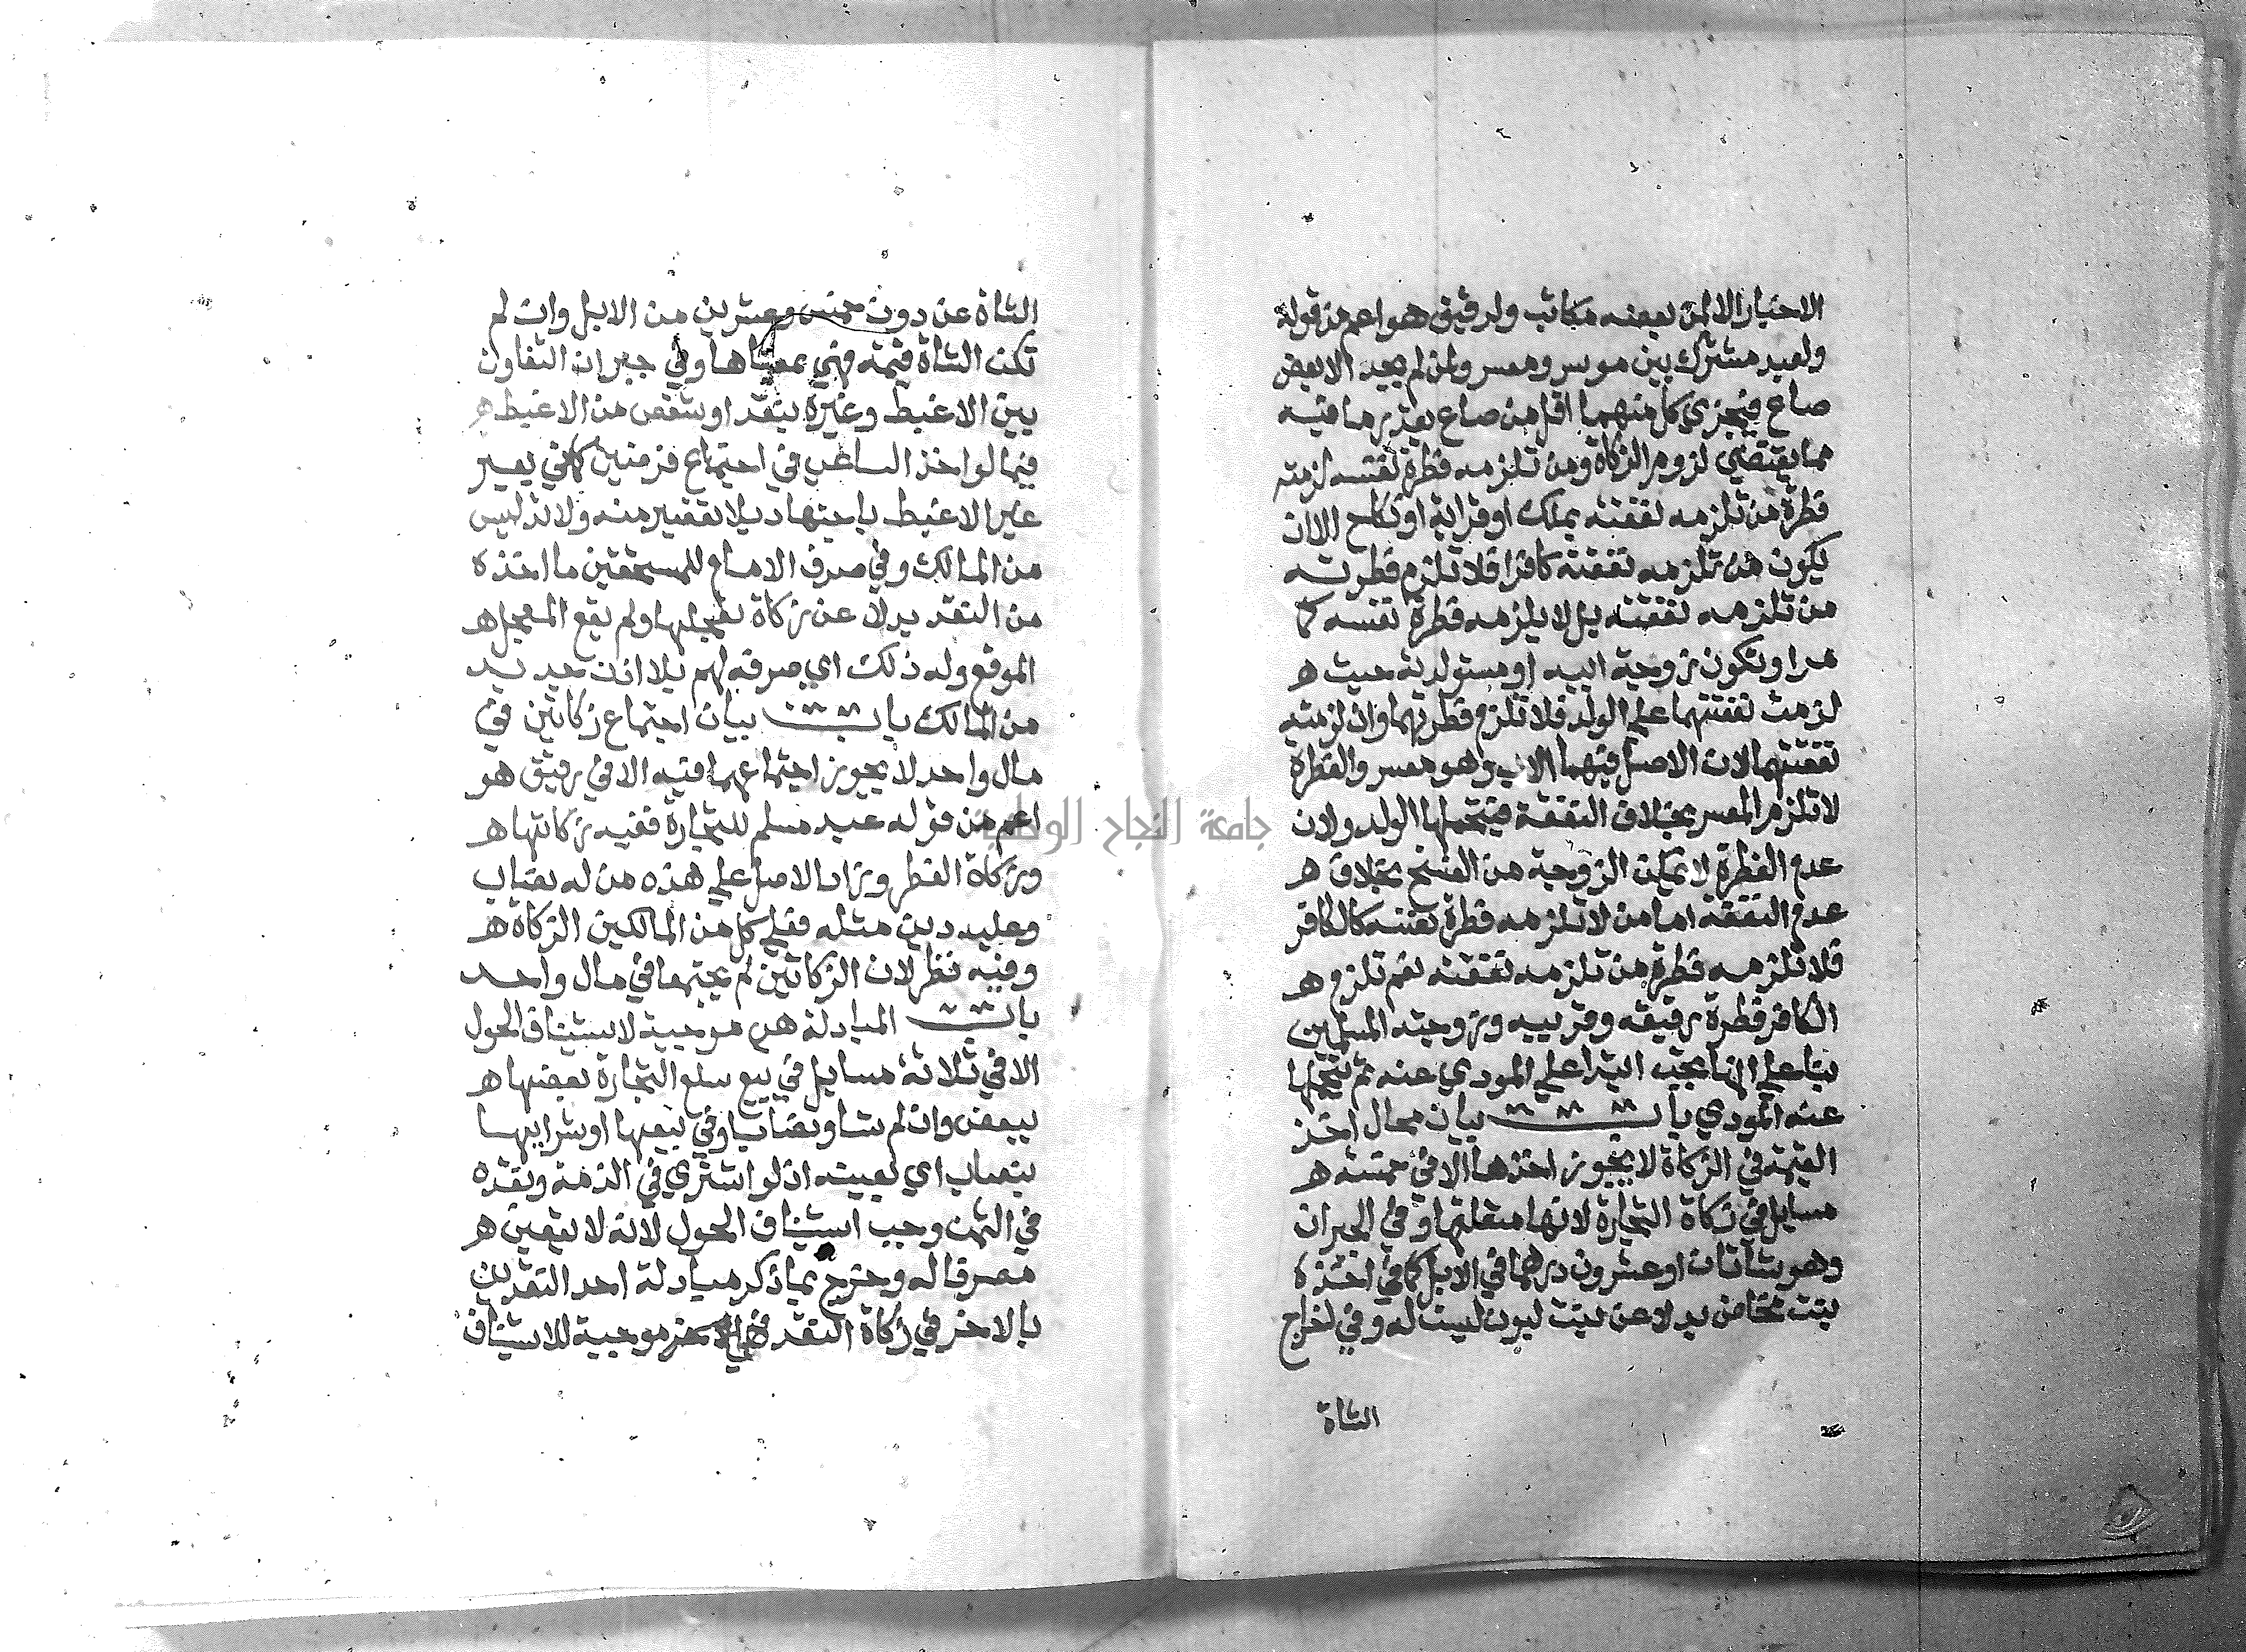 الاختيار الا لمن بعضه مكاتب ولرقيق هو اعم من قوله
ولعبد مشترك بين موسر ومعسر ولمن لم يجد الا بعض
صاع فيجزي كل منهما اقل من صاع بقدر ما فيه
مما يقتضي لزوم الزكاة ومن تلزمه فطرة نفسه لزمته
فطرة من تلزمه نفقته بملك او قرابة او نكاح الا ان
يكون من تلزمه نفقته كافرا فلا تلزم فطرته
من تلزمه نفقته بل لا يلزمه فطرة نفسه كما
مر او تكون زوجة ابيه او مستولدته حيث ه
لزمت نفقتهما علي الولد فلا تلزم فطرتهما وان لزمته
نفقتهما لان الاصل فيهما الاب وهو معسر والفطرة
لا تلزم المعسر بخلاف النفقة فيتحملها الولد ولان
عدم الفطرة لا يمكن الزوجة من الفسخ بخلاف ه
عدم النفقة اما من لا تلزمه فطرة نفسه كالكافر
فلا تلزمه فطرة من تلزمه نفقته نعم تلزم ه
الكافر فطرة رقيقه وقريبه وزوجته المسلمين
بنا علي انها تجب ابتدا علي المودي عنه ثم يتحملها
عنه المودي باب بيان محال اخذ
القيمة في الزكاة لا يجوز اخذها الا في خمسة ه
مسايل في زكاة التجارة لانها متعلقها وفي الجبران
وهو شاتان او عشرون درهما في الابل كما في اخذه
بنت مخاض بدلا عن بنت لبون ليست له وفي اخراج
الشاة
الشاة عن دون خمس وعشرين من الابل وان لم
تكن الشاة قيمة فهي بمعناها وفي جبران التفاوت
بين الاغبط وغيره بنقد او شقص من الاغبط ه
فيما لو اخذ الساعي في اجتماع فرضين كما في بعير
غير الاغبط باجتهاد بلا تقصير منه ولا تدليس
من المالك وفي صرف الامام للمستحقين ما اخذه
من النقد بدلا عن زكاة تعجلها ولم يقع المعجل ه
الموقع وله ذلك اي صرفه لهم بلا اذن جديد
من المالك باب بيان اجتماع زكاتين في
مال واحد لا يجوز اجتماعهما فيه الا في رقيق هو
اعم من قوله عبد مسلم للتجارة ففيه زكاتها ه
وزكاة الفطر وزاد الاصل علي هذه من له نصاب
وعليه دين مثله فعلي كل من المالكين الزكاة ه
وفيه نظر لان الزكاتين لم يجتمعا في مال واحد
باب المبادلة هي موجبة لاستيناف الحول
الا في ثلاثة مسايل في بيع سلع التجارة بعضها ه
ببعض وان لم تساو نصابا وفي بيعها او شرايها
بنصاب اي بعينه اذ لو اشتري في الذمة ونقده
في الثمن وجب استيناف الحول لانه لا يتعين ه
مصرفا له وخرج بما ذكر مبادلة احد النقدين
بالاخر في زكاة النقد فهي موجبة للاستيناف
جامعة النجاح الوطنية